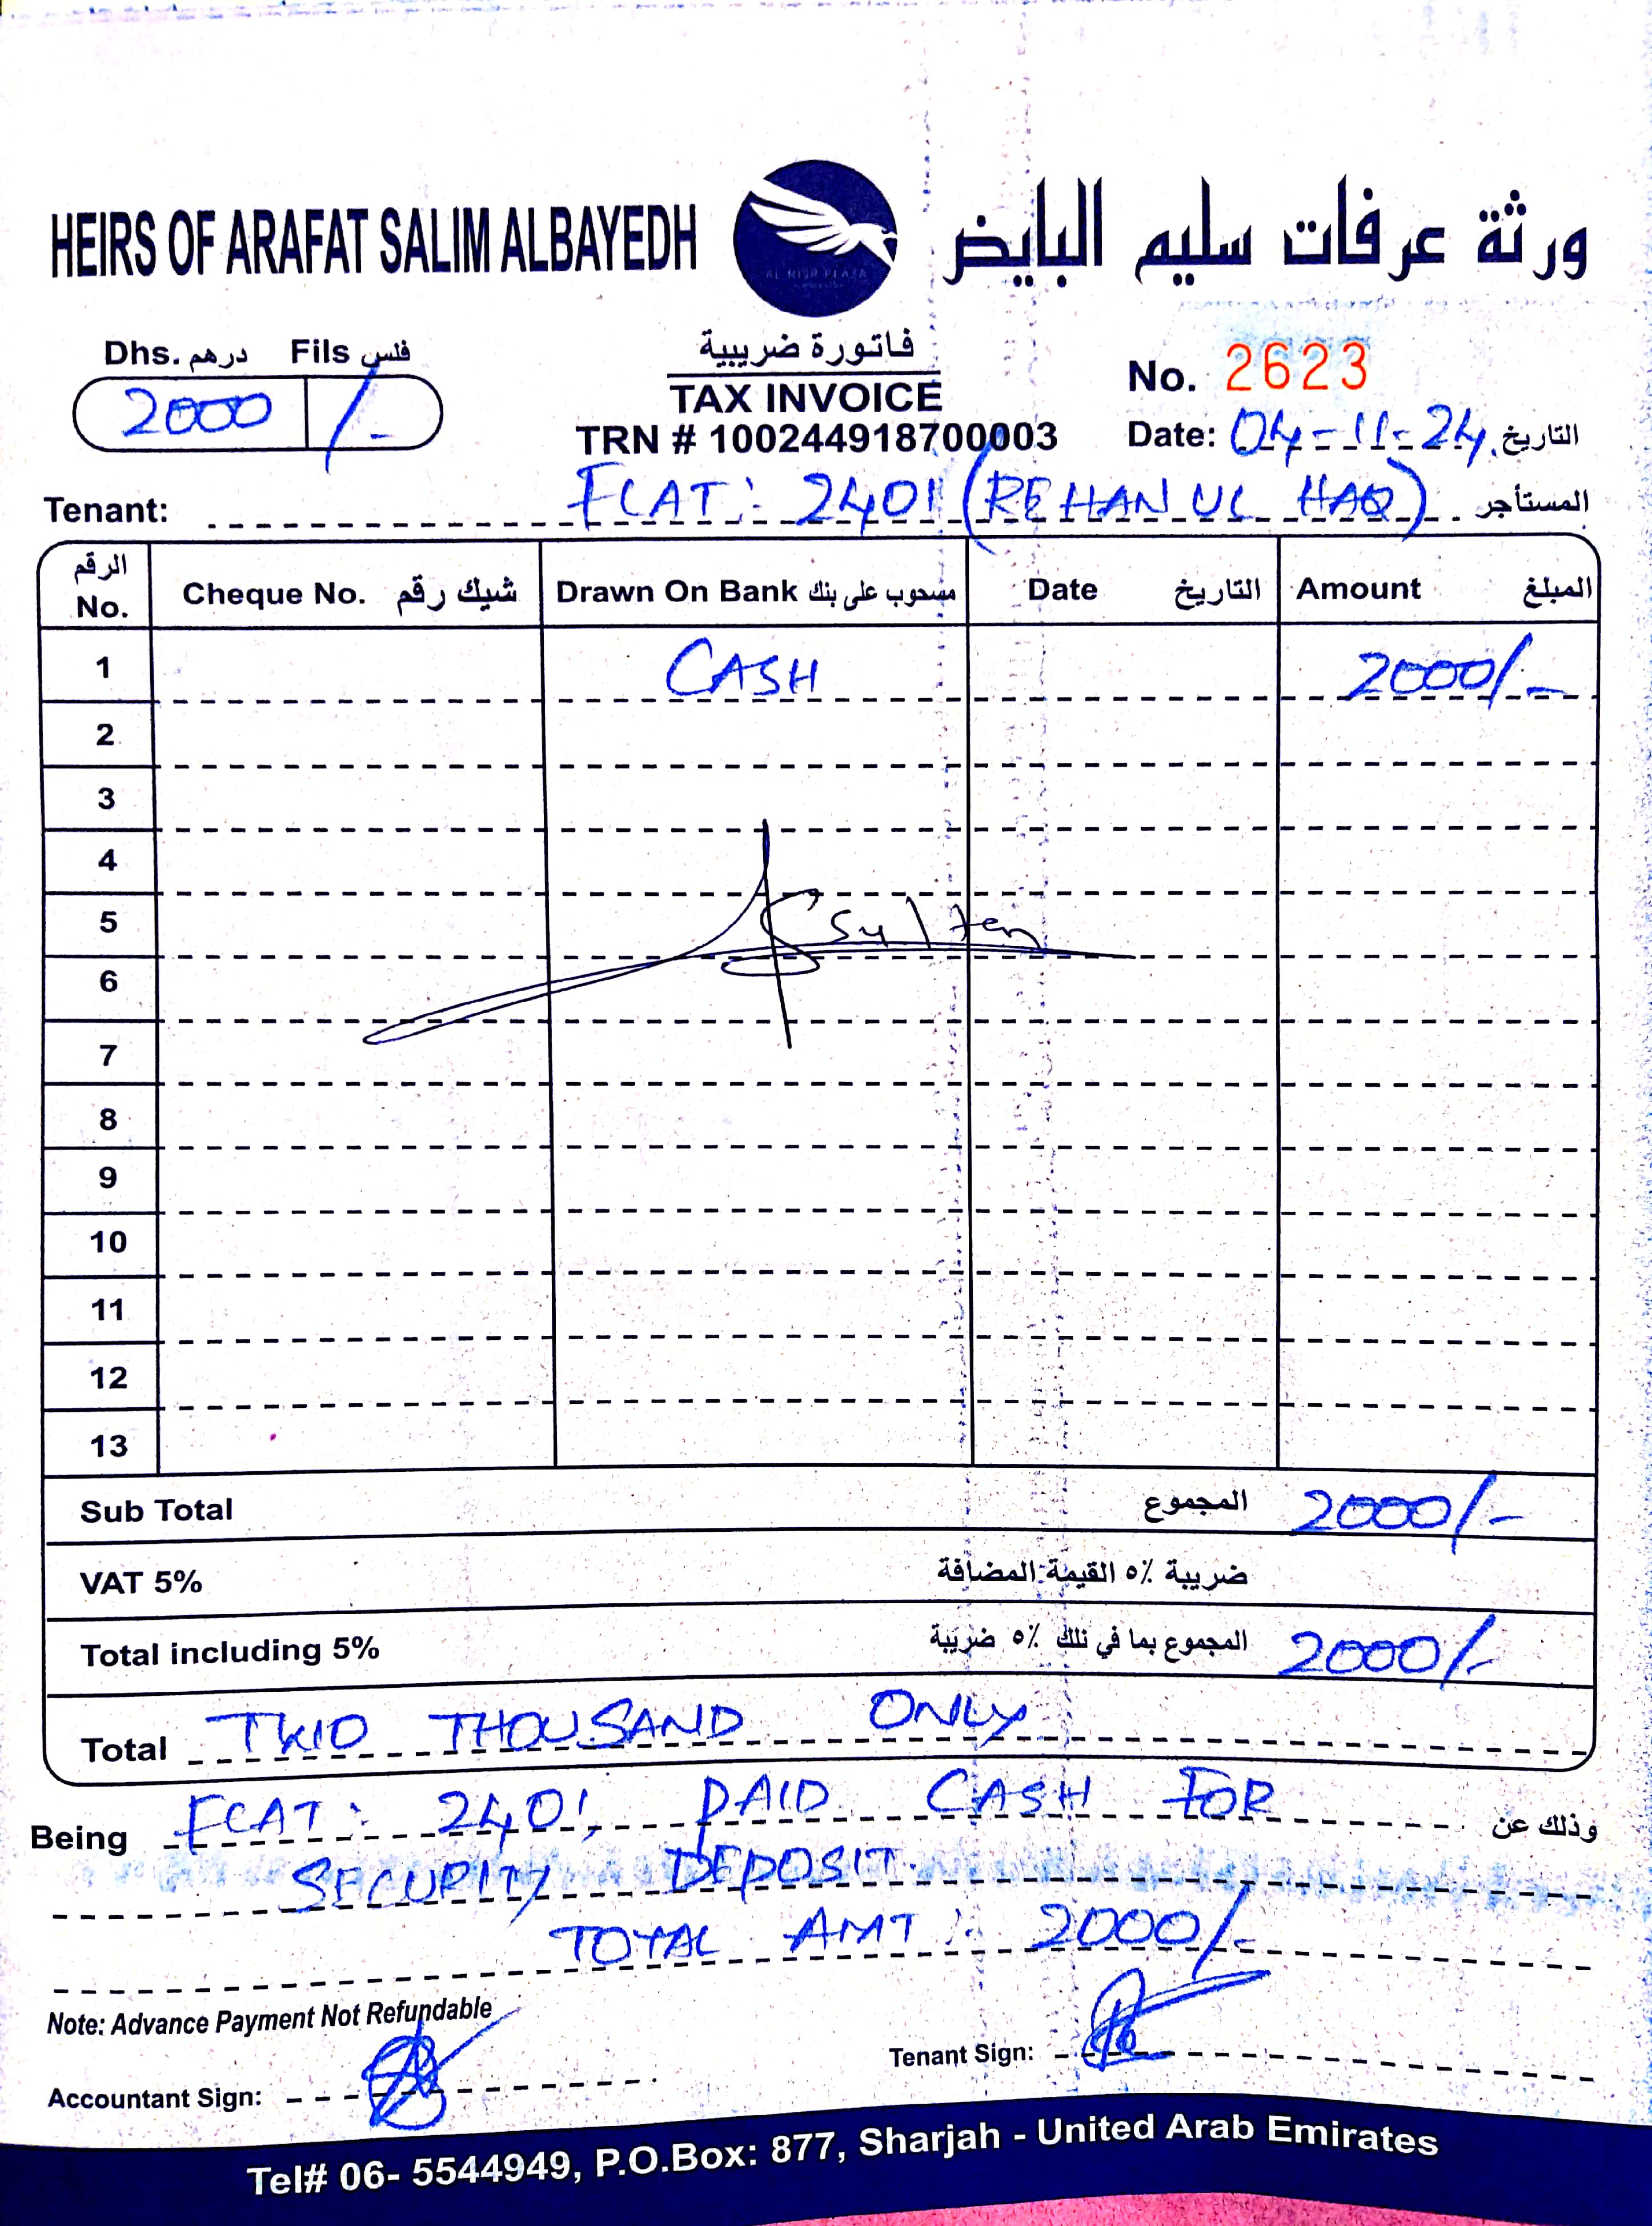 HEIRS OF ARAFAT SALIM ALBAYEDH
ورثة عرفات سليم البايض
AL NISR PLAZA
Dhs. درهم Fils فلس
2000 /-
فاتورة ضريبية
TAX INVOICE
TRN # 100244918700003
No. 2623
Date: 04-11-24 التاريخ
Tenant: FLAT: 2401 (REHAN UL HAQ) المستأجر
الرقم No. Cheque No. شيك رقم Drawn On Bank مسحوب على بنك Date التاريخ Amount المبلغ
1 CASH 2000/-
2
3
4
5 Sultan
6
7
8
9
10
11
12
13
Sub Total المجموع 2000/-
VAT 5% ضريبة ٥٪ القيمة المضافة
Total including 5% المجموع بما في ذلك ٥٪ ضريبة 2000/-
Total TWO THOUSAND ONLY
Being FLAT: 2401, PAID CASH FOR وذلك عن
SECURITY DEPOSIT.
TOTAL AMT: 2000/-
Note: Advance Payment Not Refundable
Accountant Sign:
Tenant Sign:
Tel# 06- 5544949, P.O.Box: 877, Sharjah - United Arab Emirates